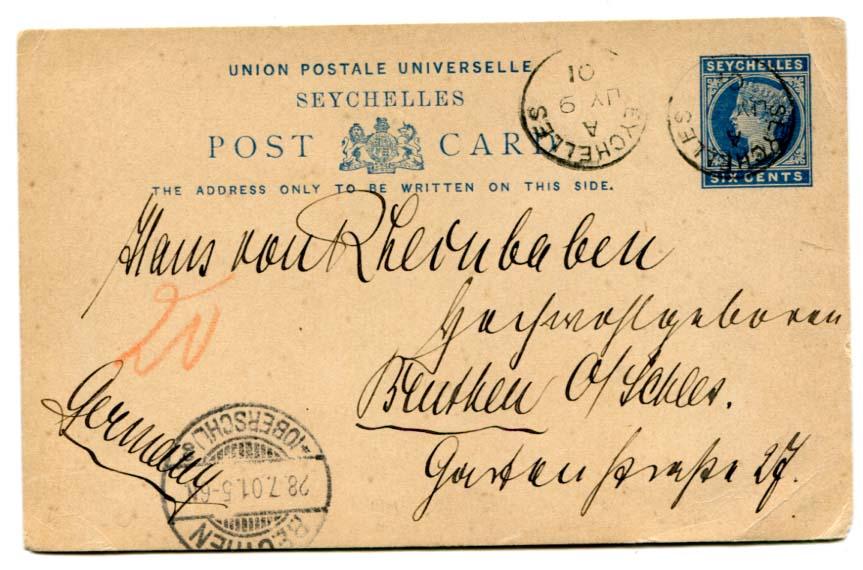 UNION POSTALE UNIVERSELLE
SEYCHELLES
POST CARD
THE ADDRESS ONLY TO BE WRITTEN ON THIS SIDE.
SEYCHELLES
A
JY 9
01
SEYCHELLES
SIX CENTS
SEYCHELLES
A
Hans von Rheinbaben
Hochwohlgeboren
20
Beuthen O/Schles.
Germany
Gartenstraße 27.
BEUTHEN
28.7.01.5-6
(OBERSCHL)